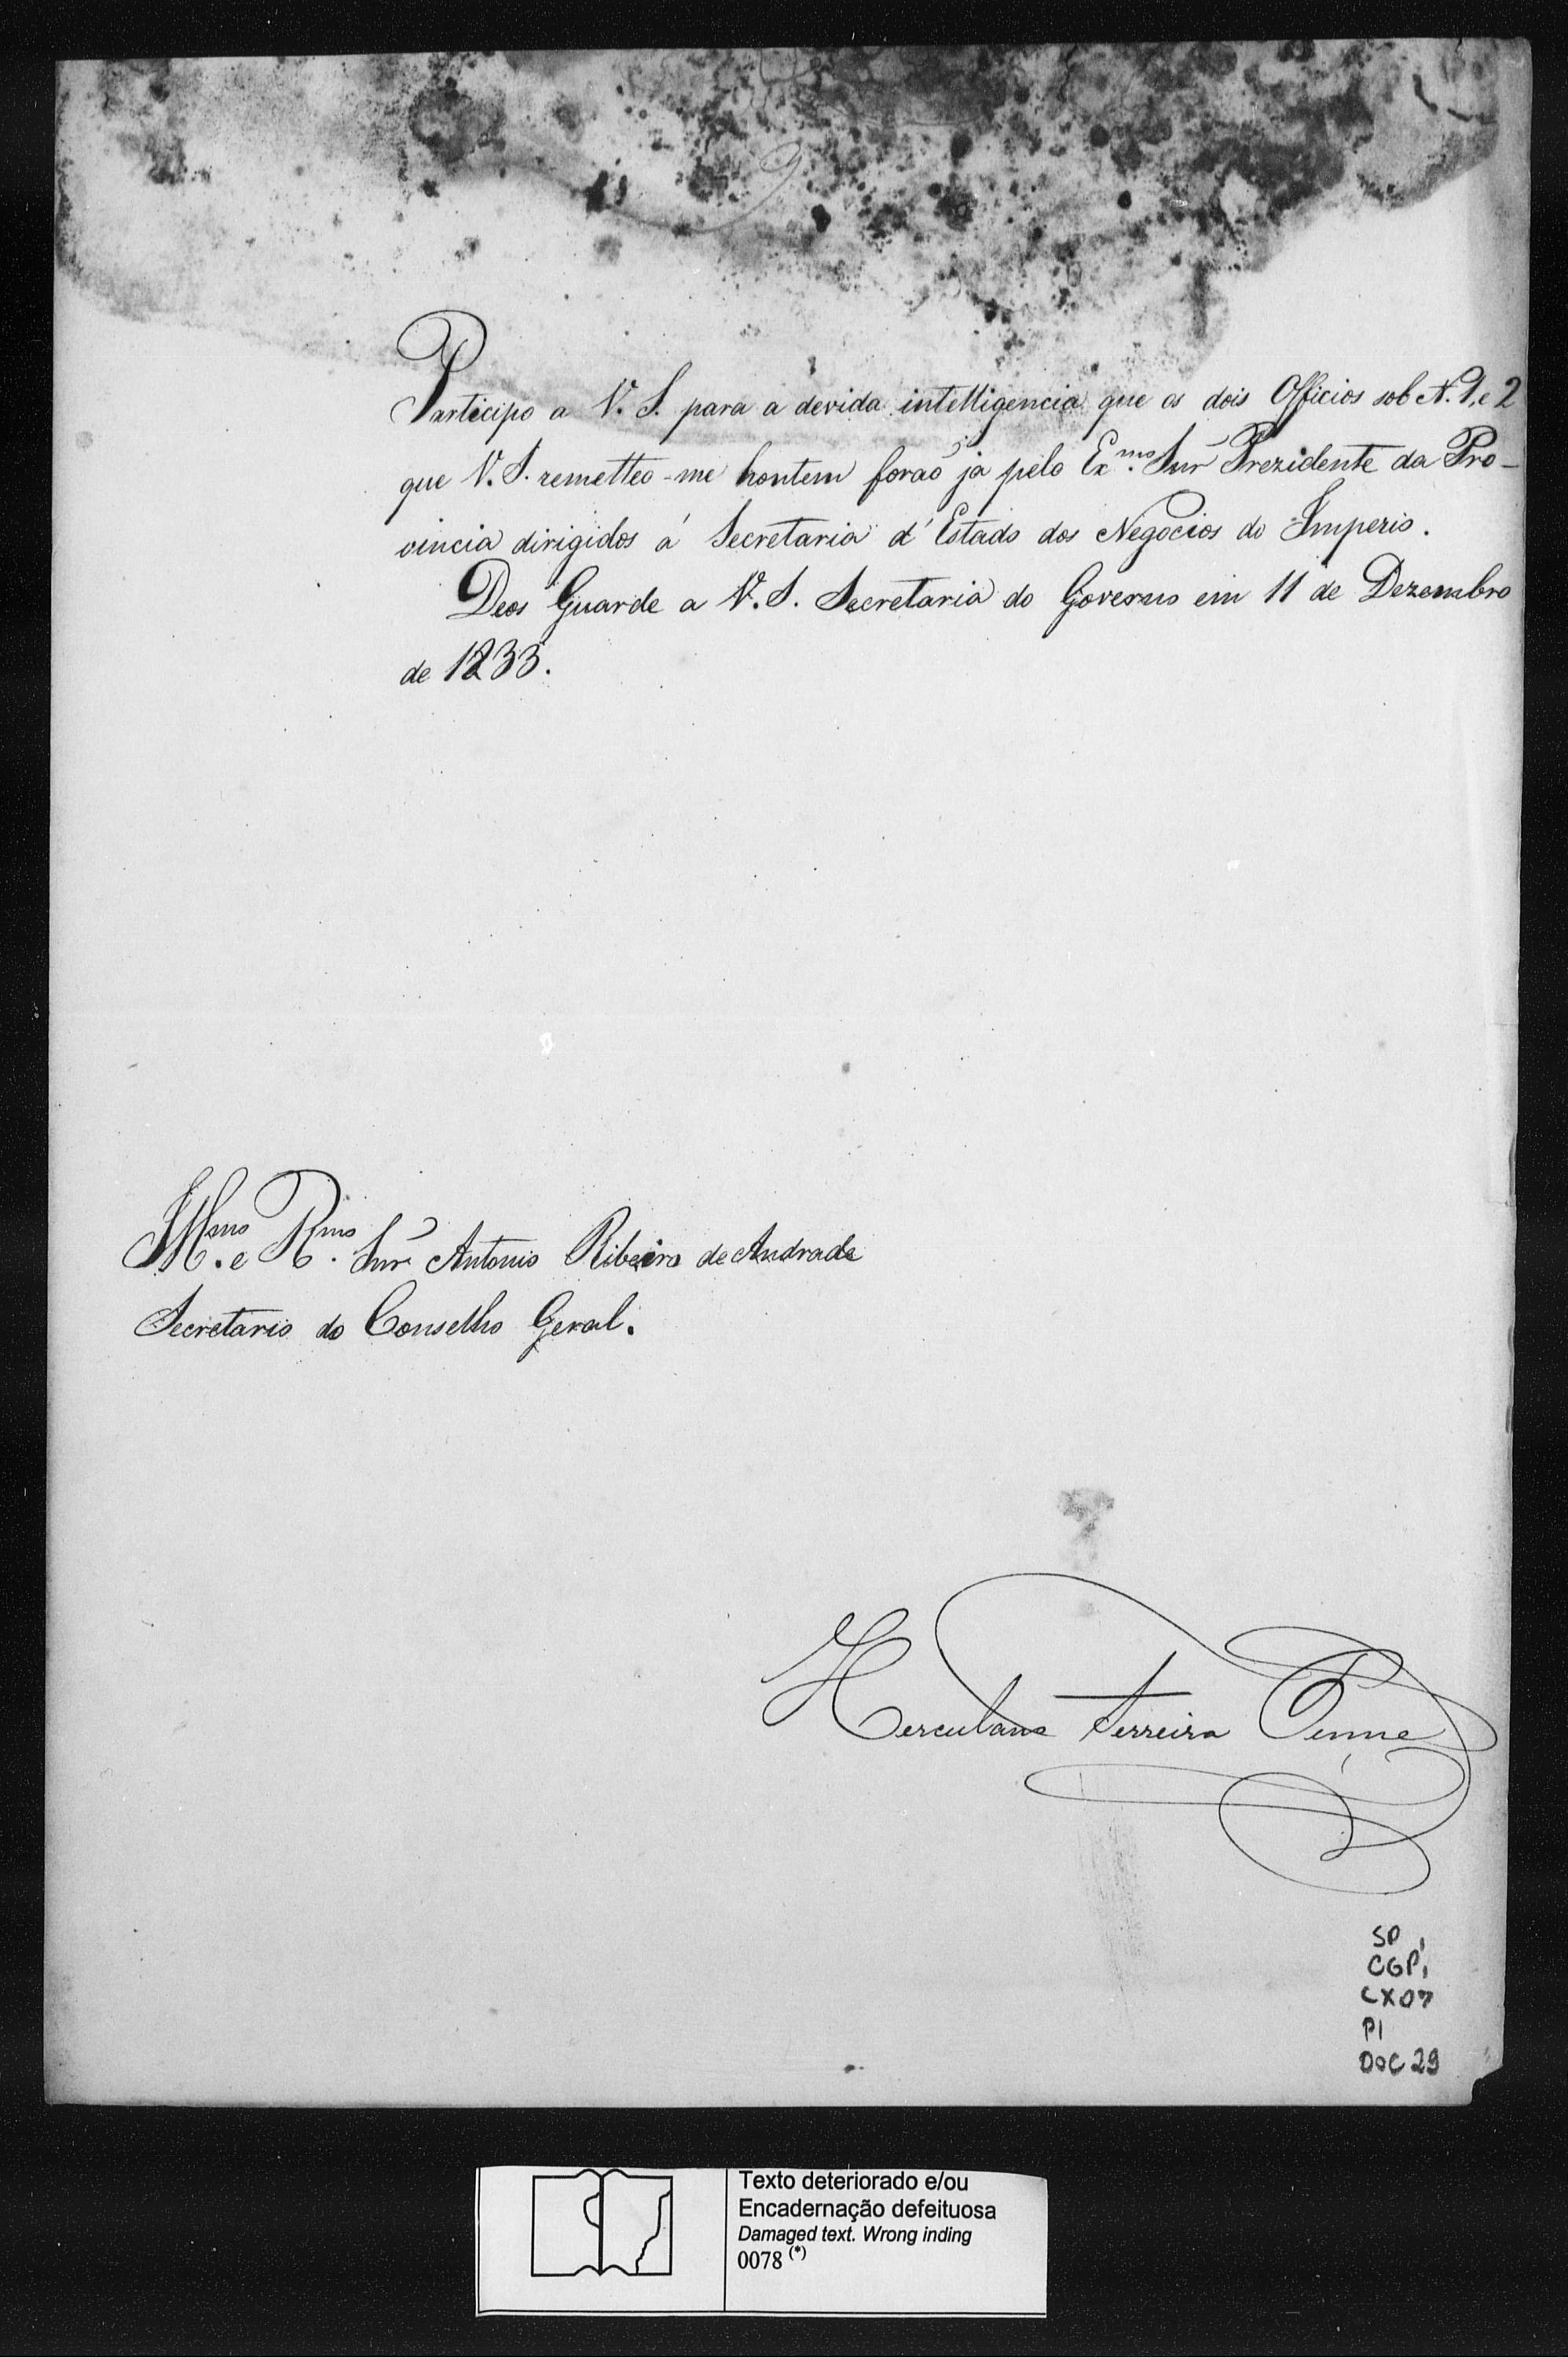 Participo a V. S. para a devida intelligencia que os dois Officios sob N. 1, e 2
que V. S. remetteo-me hontem foraõ já pelo Exmo. Snr̃ Prezidente da Pro-
vincia dirigidos á Secretaria d'Estado dos Negocios do Imperio.
Deos Guarde a V. S. Secretaria do Governo em 11 de Dezembro
de 1833.
Illmo. e Rmo. Snr̃ Antonio Ribeiro de Andrade
Secretario do Conselho Geral.
Herculano Ferreira Penna
SP,
CGP,
CX07
P1
DOC 29
Texto deteriorado e/ou
Encadernação defeituosa
Damaged text. Wrong inding
0078 (*)